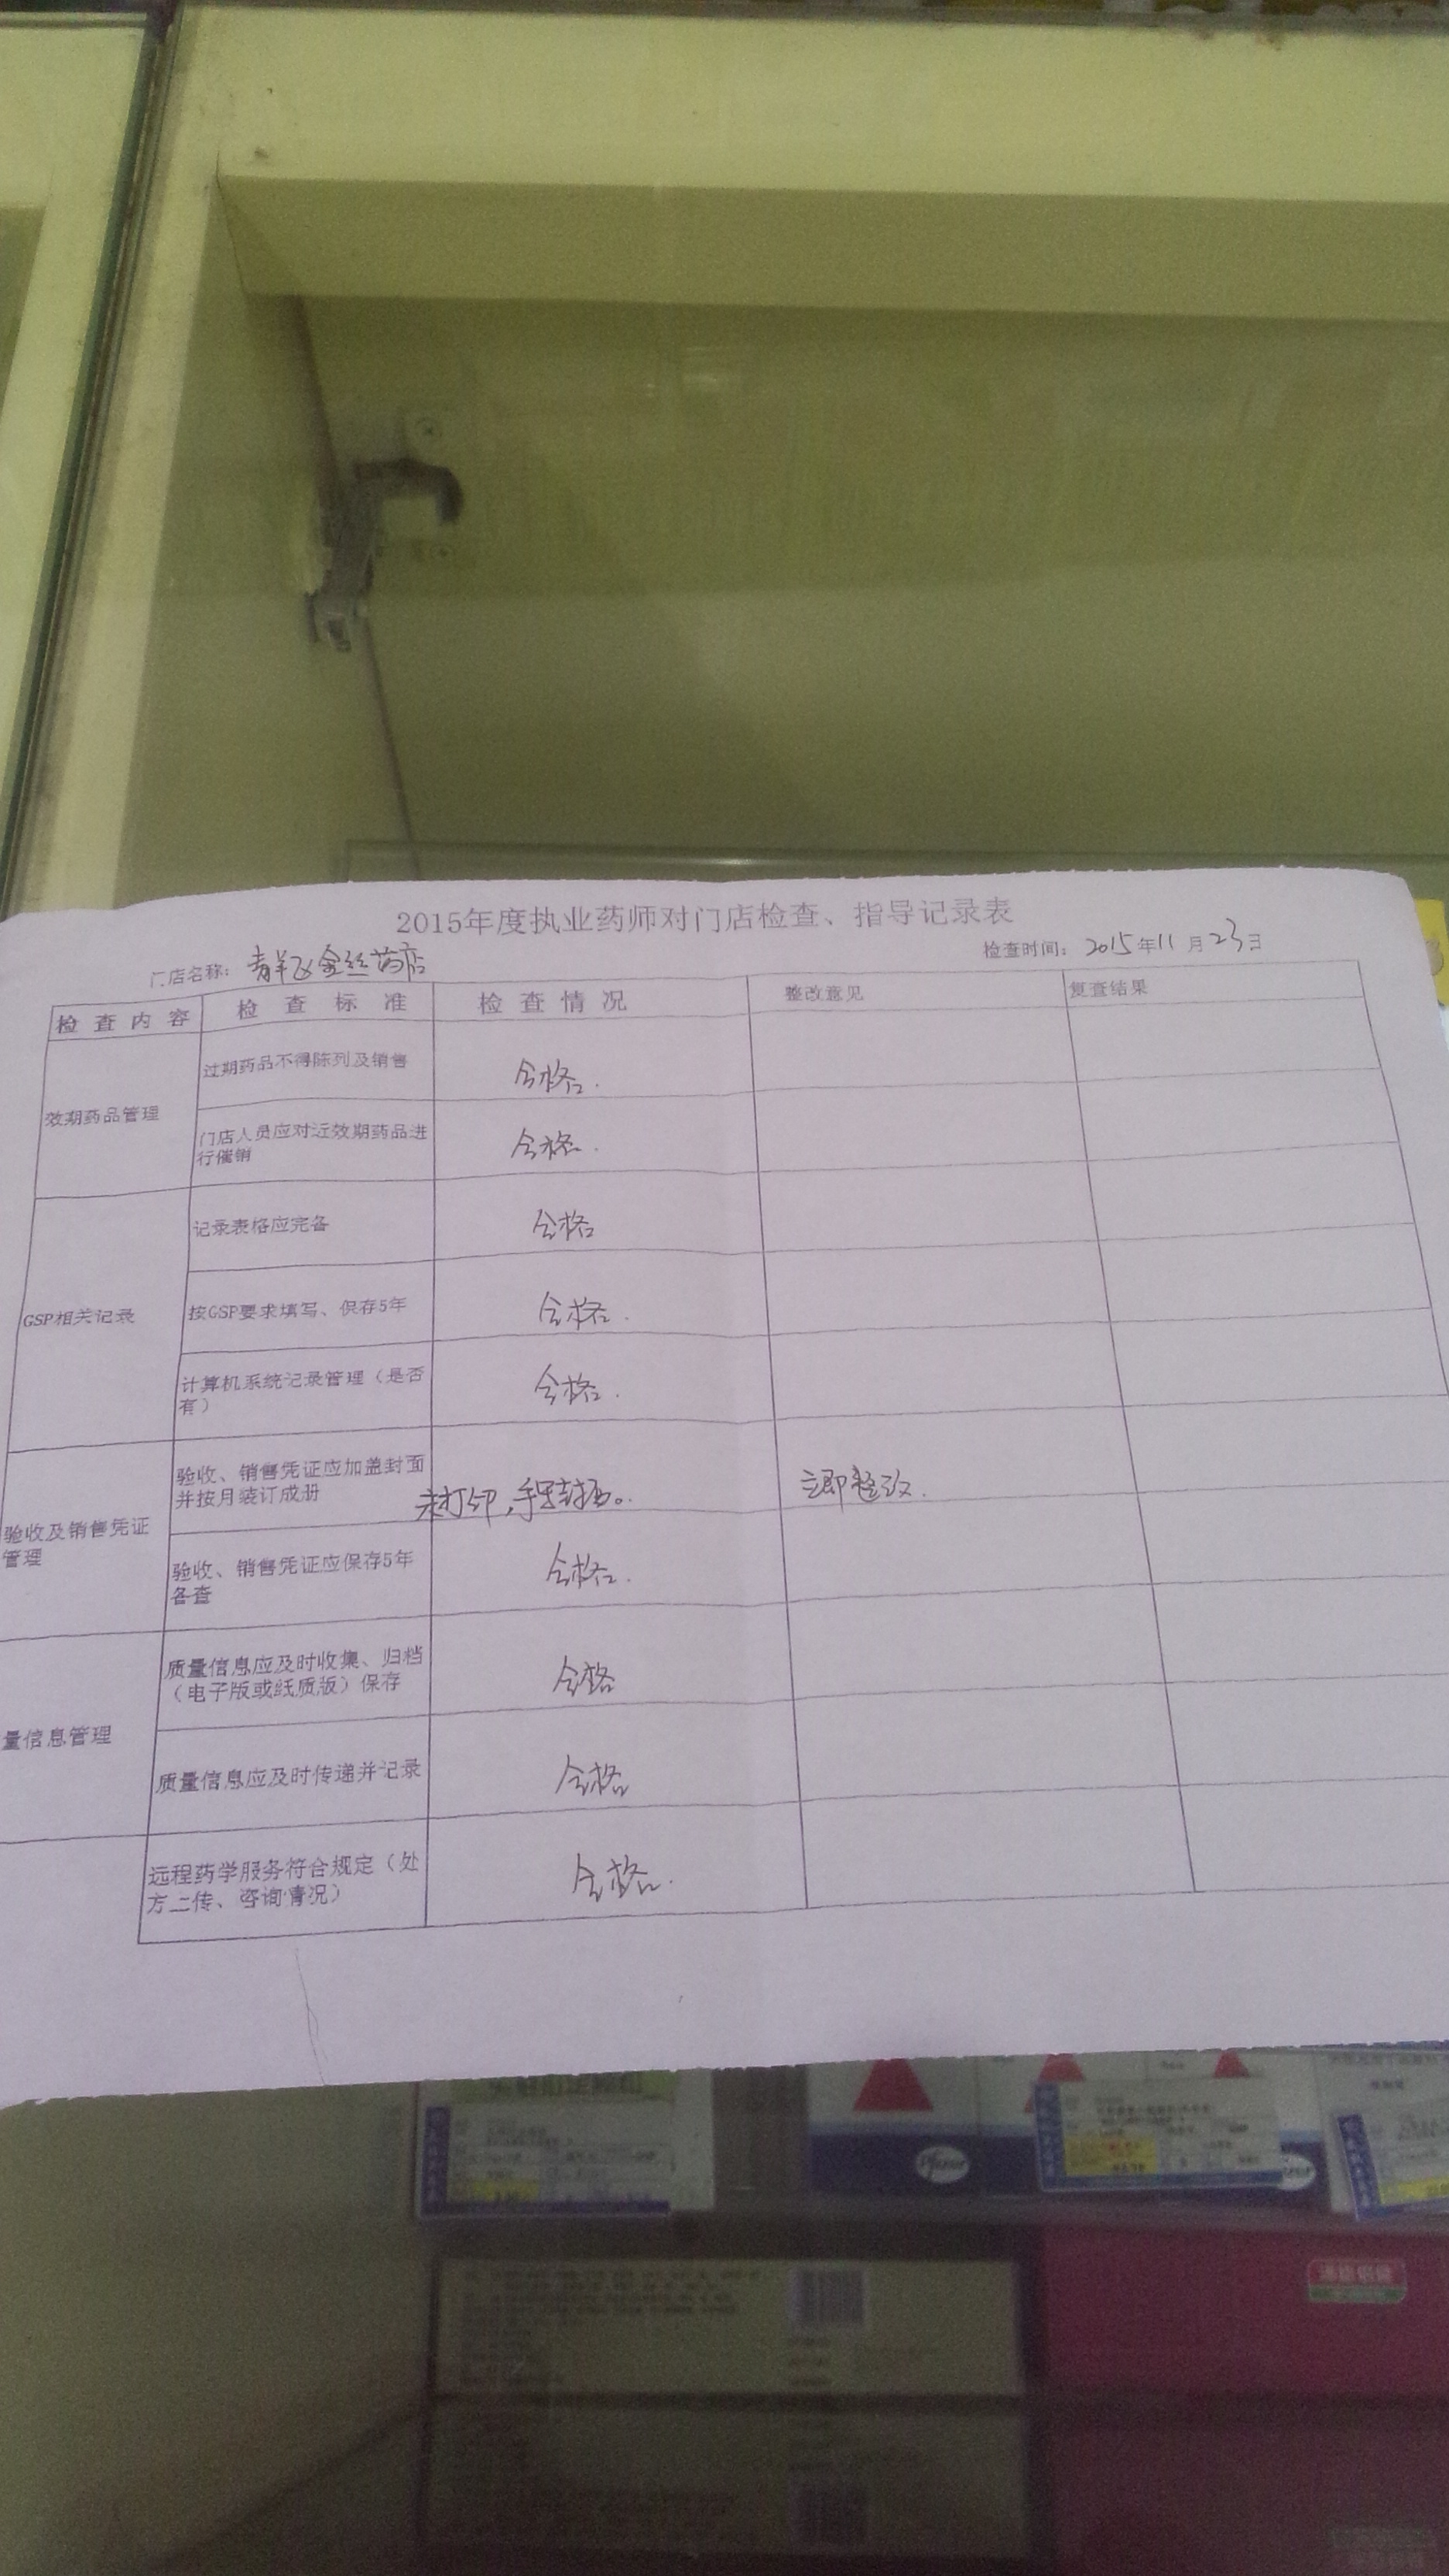 2015年度执业药师对门店检查、指导记录表
门店名称: 青羊区金丝药店
检查时间: 2015年11月23日
检查内容 检查标准 检查情况 整改意见 复查结果
效期药品管理
过期药品不得陈列及销售 合格.
门店人员应对近效期药品进
行催销
合格.
GSP相关记录
记录表格应完备 合格
按GSP要求填写、保存5年 合格.
计算机系统记录管理（是否
有）
合格.
验收及销售凭证
管理
验收、销售凭证应加盖封面
并按月装订成册
未打印,
立即整改.
验收、销售凭证应保存5年
备查
合格.
量信息管理
质量信息应及时收集、归档
（电子版或纸质版）保存
合格
质量信息应及时传递并记录 合格
远程药学服务符合规定（处
方上传、咨询情况）
合格.
Pfizer